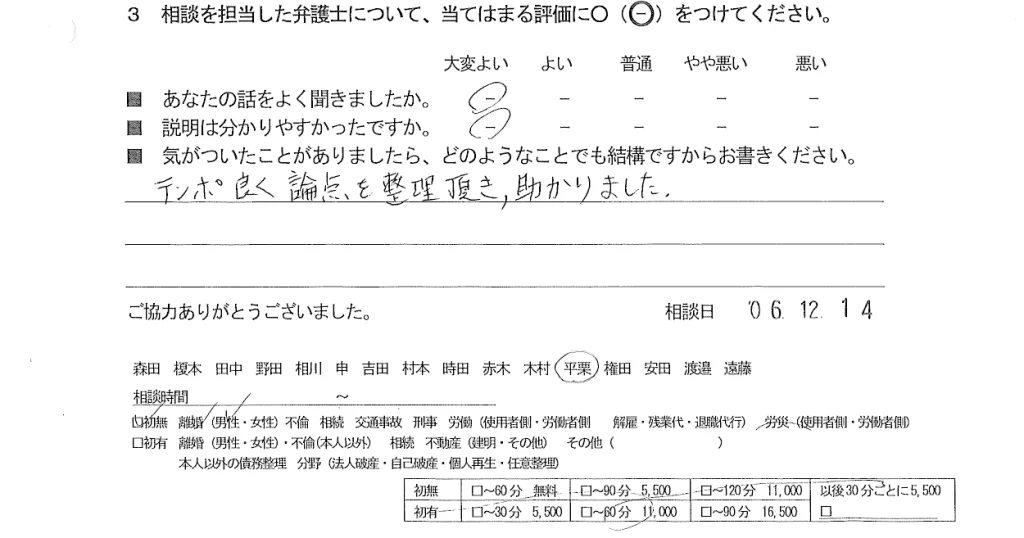 3 相談を担当した弁護士について、当てはまる評価に○（㊀）をつけてください。
大変よい よい 普通 やや悪い 悪い
■ あなたの話をよく聞きましたか。 － － － － －
■ 説明は分かりやすかったですか。 － － － － －
■ 気がついたことがありましたら、どのようなことでも結構ですからお書きください。
テンポ良く論点を整理頂き,助かりました.
ご協力ありがとうございました。 相談日 '06.12.14
森田 榎本 田中 野田 相川 申 吉田 村本 時田 赤木 木村 平栗 権田 安田 渡邉 遠藤
相談時間 ～
□初無 離婚（男性・女性）不倫 相続 交通事故 刑事 労働（使用者側・労働者側 解雇・残業代・退職代行） 労災（使用者側・労働者側）
□初有 離婚（男性・女性）・不倫（本人以外） 相続 不動産（建明・その他） その他（ ）
本人以外の債務整理 分野（法人破産・自己破産・個人再生・任意整理）
初無 □～60分 無料 □～90分 5,500 □～120分 11,000 以後30分ごとに5,500
初有 □～30分 5,500 □～60分 11,000 □～90分 16,500 □